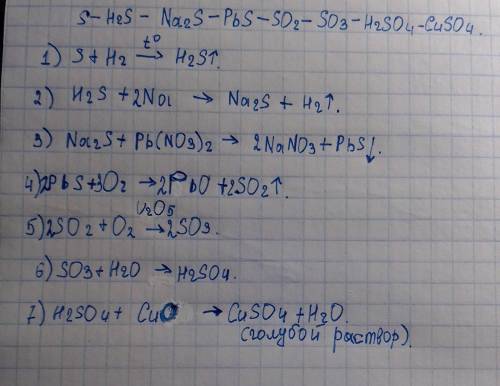 S-H2S-Na2S-PbS-SO2-SO3-H2SO4-CuSO4.
t°
1) S+H2 → H2S↑.
2) H2S+2Na → Na2S+H2↑.
3) Na2S+Pb(NO3)2 → 2NaNO3+PbS↓.
4) 2PbS+3O2 → 2PbO+2SO2↑.
V2O5
5) 2SO2+O2 → 2SO3.
6) SO3+H2O → H2SO4.
7) H2SO4+ CuO → CuSO4+H2O.
(голубой раствор).